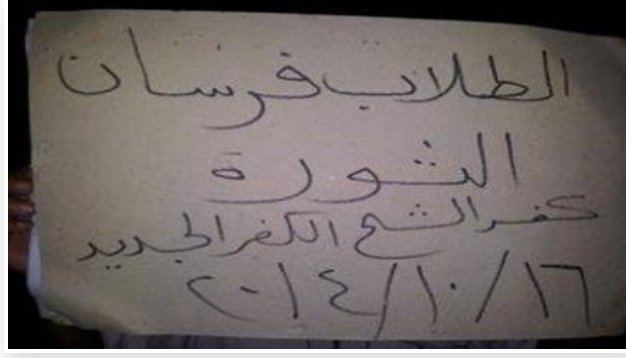 الطلاب فرسان
الثورة
كفر الشيخ الكفر الجديد
٢٠١٤/١٠/١٦